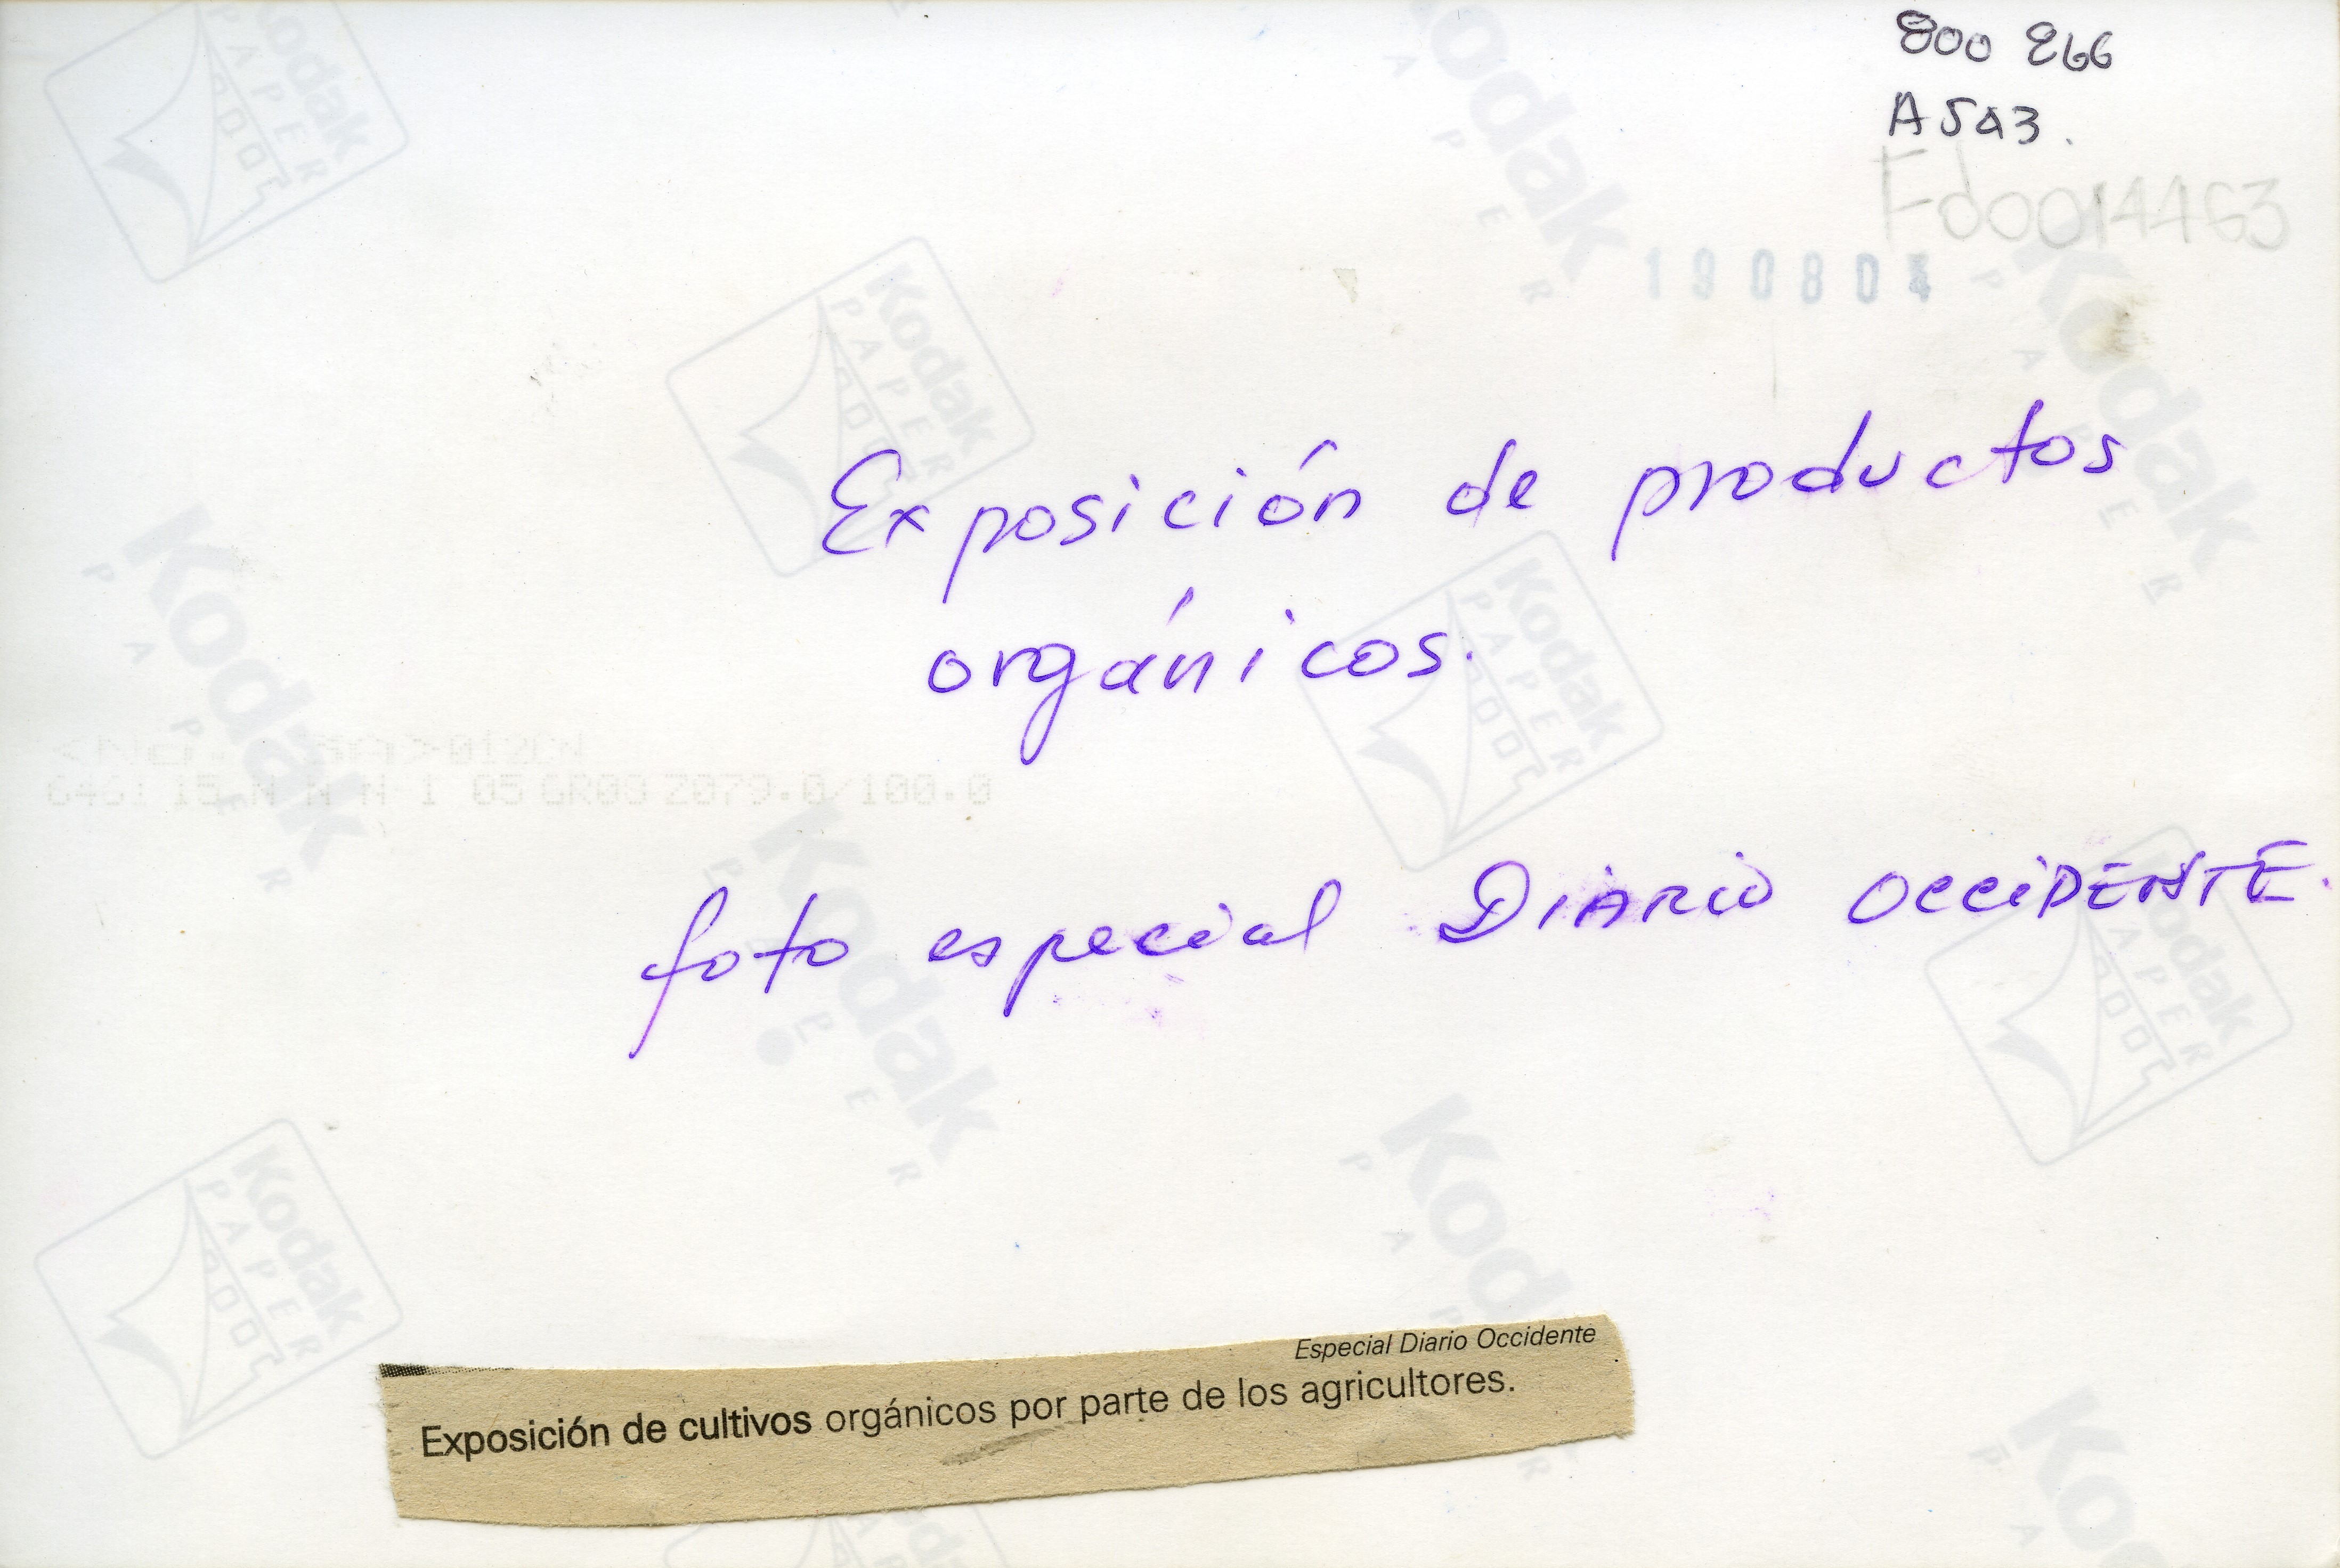 800 866
A5A3.
Fd0014463
190804
Exposición de productos
orgánicos.
foto especial DiARio OcciDENTE.
Especial Diario Occidente
Exposición de cultivos orgánicos por parte de los agricultores.
Kodak
PAPER